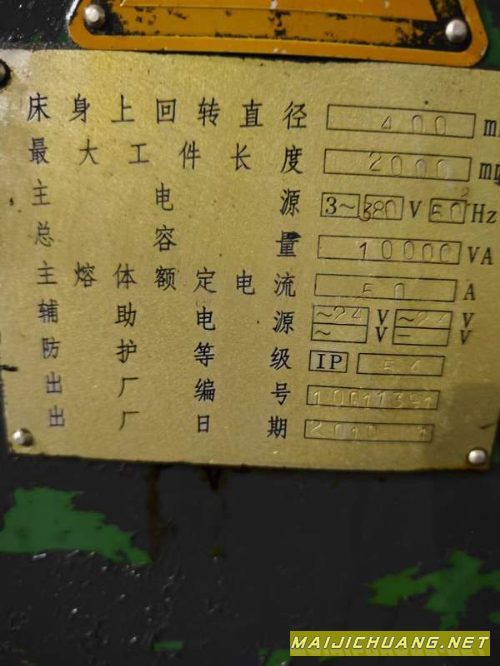 MAIJICHUANG.NET
床身上回转直径 400 m
最大工件长度 2000 mm
主电源 3~ 380 V 50 Hz
总容量 10000 VA
主熔体额定电流 50 A
辅助电源 ~24 V ~24 V
~ V – V
防护等级 IP 54
出厂编号 10011391
出厂日期 2010 1
MAIJICHUANG.NET